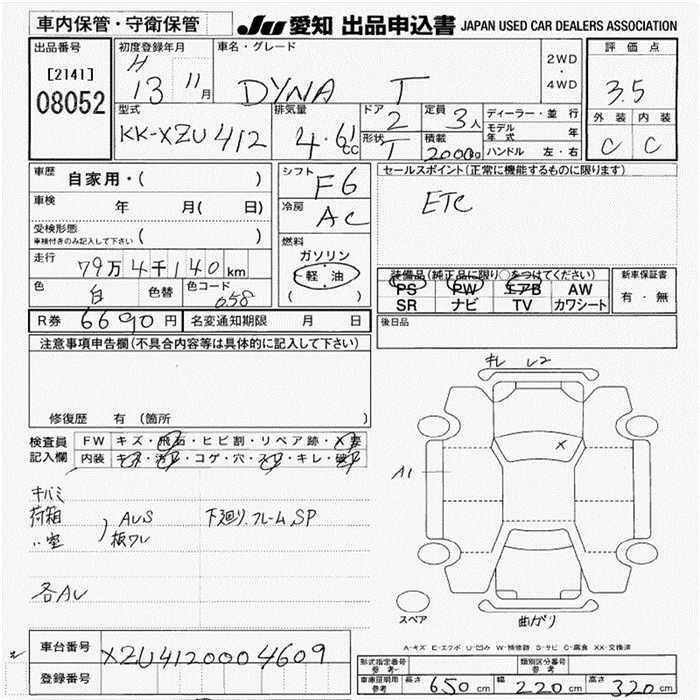 車内保管・守衛保管 JU 愛知 出品申込書 JAPAN USED CAR DEALERS ASSOCIATION
出品番号 初度登録年月 車名・グレード 2WD・4WD 評価点
[2141] H 13 11月 DYNA T 3.5
08052
型式 排気量 ドア 定員 ディーラー・並行 外装 内装
KK-XZU412 4.61cc 2 3人 モデル年式 年 C C
形状 積載 ハンドル 左・右
T 2000kg
車歴 自家用・( ) シフト F6 セールスポイント(正常に機能するものに限ります)
車検 年 月( 日) 冷房 AC ETC
受検形態
車検付きのみ記入して下さい ( ) 燃料
走行 79万4千140km ガソリン 装備品(純正品に限り○をつけてください) 新車保証書
色 白 色替 色コード 058 軽油 PS PW エアB AW 有・無
( ) SR ナビ TV カワシート
R券 6690円 名変通知期限 月 日 後日品
注意事項申告欄(不具合内容等は具体的に記入して下さい)
キレ レ2
修復歴 有 (箇所 )
検査員 FW キズ・飛石・ヒビ割・リペア跡・X要
記入欄 内装 キズ・汚れ・コゲ・穴・スレ・キレ・破れ
X
A1
キバミ
荷箱 AUS 下廻り.フレームSP
〃室 板ワレ
各AU
スペア 曲がり
A-キズ E-エクボ U-凹み W-補修跡 S-サビ C-腐食 XX-交換済
車台番号 XZU4120004609
登録番号
形式指定番号 参考 類別区分番号 参考
車庫証明用 参考 長さ 650cm 幅 220cm 高さ 320cm